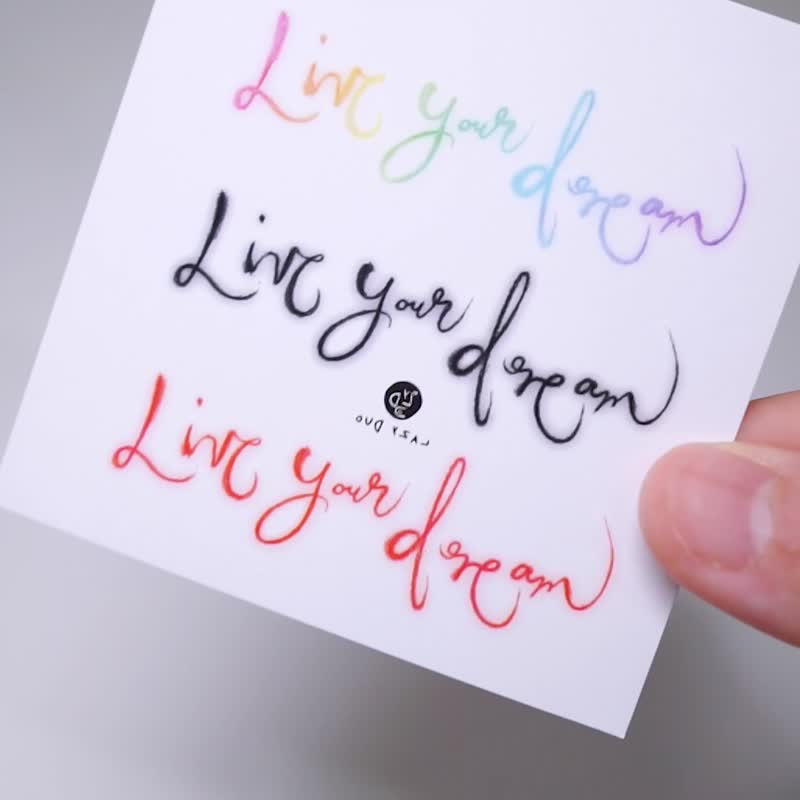 Live your dream
Live your dream
LAZY DUO
Live your dream